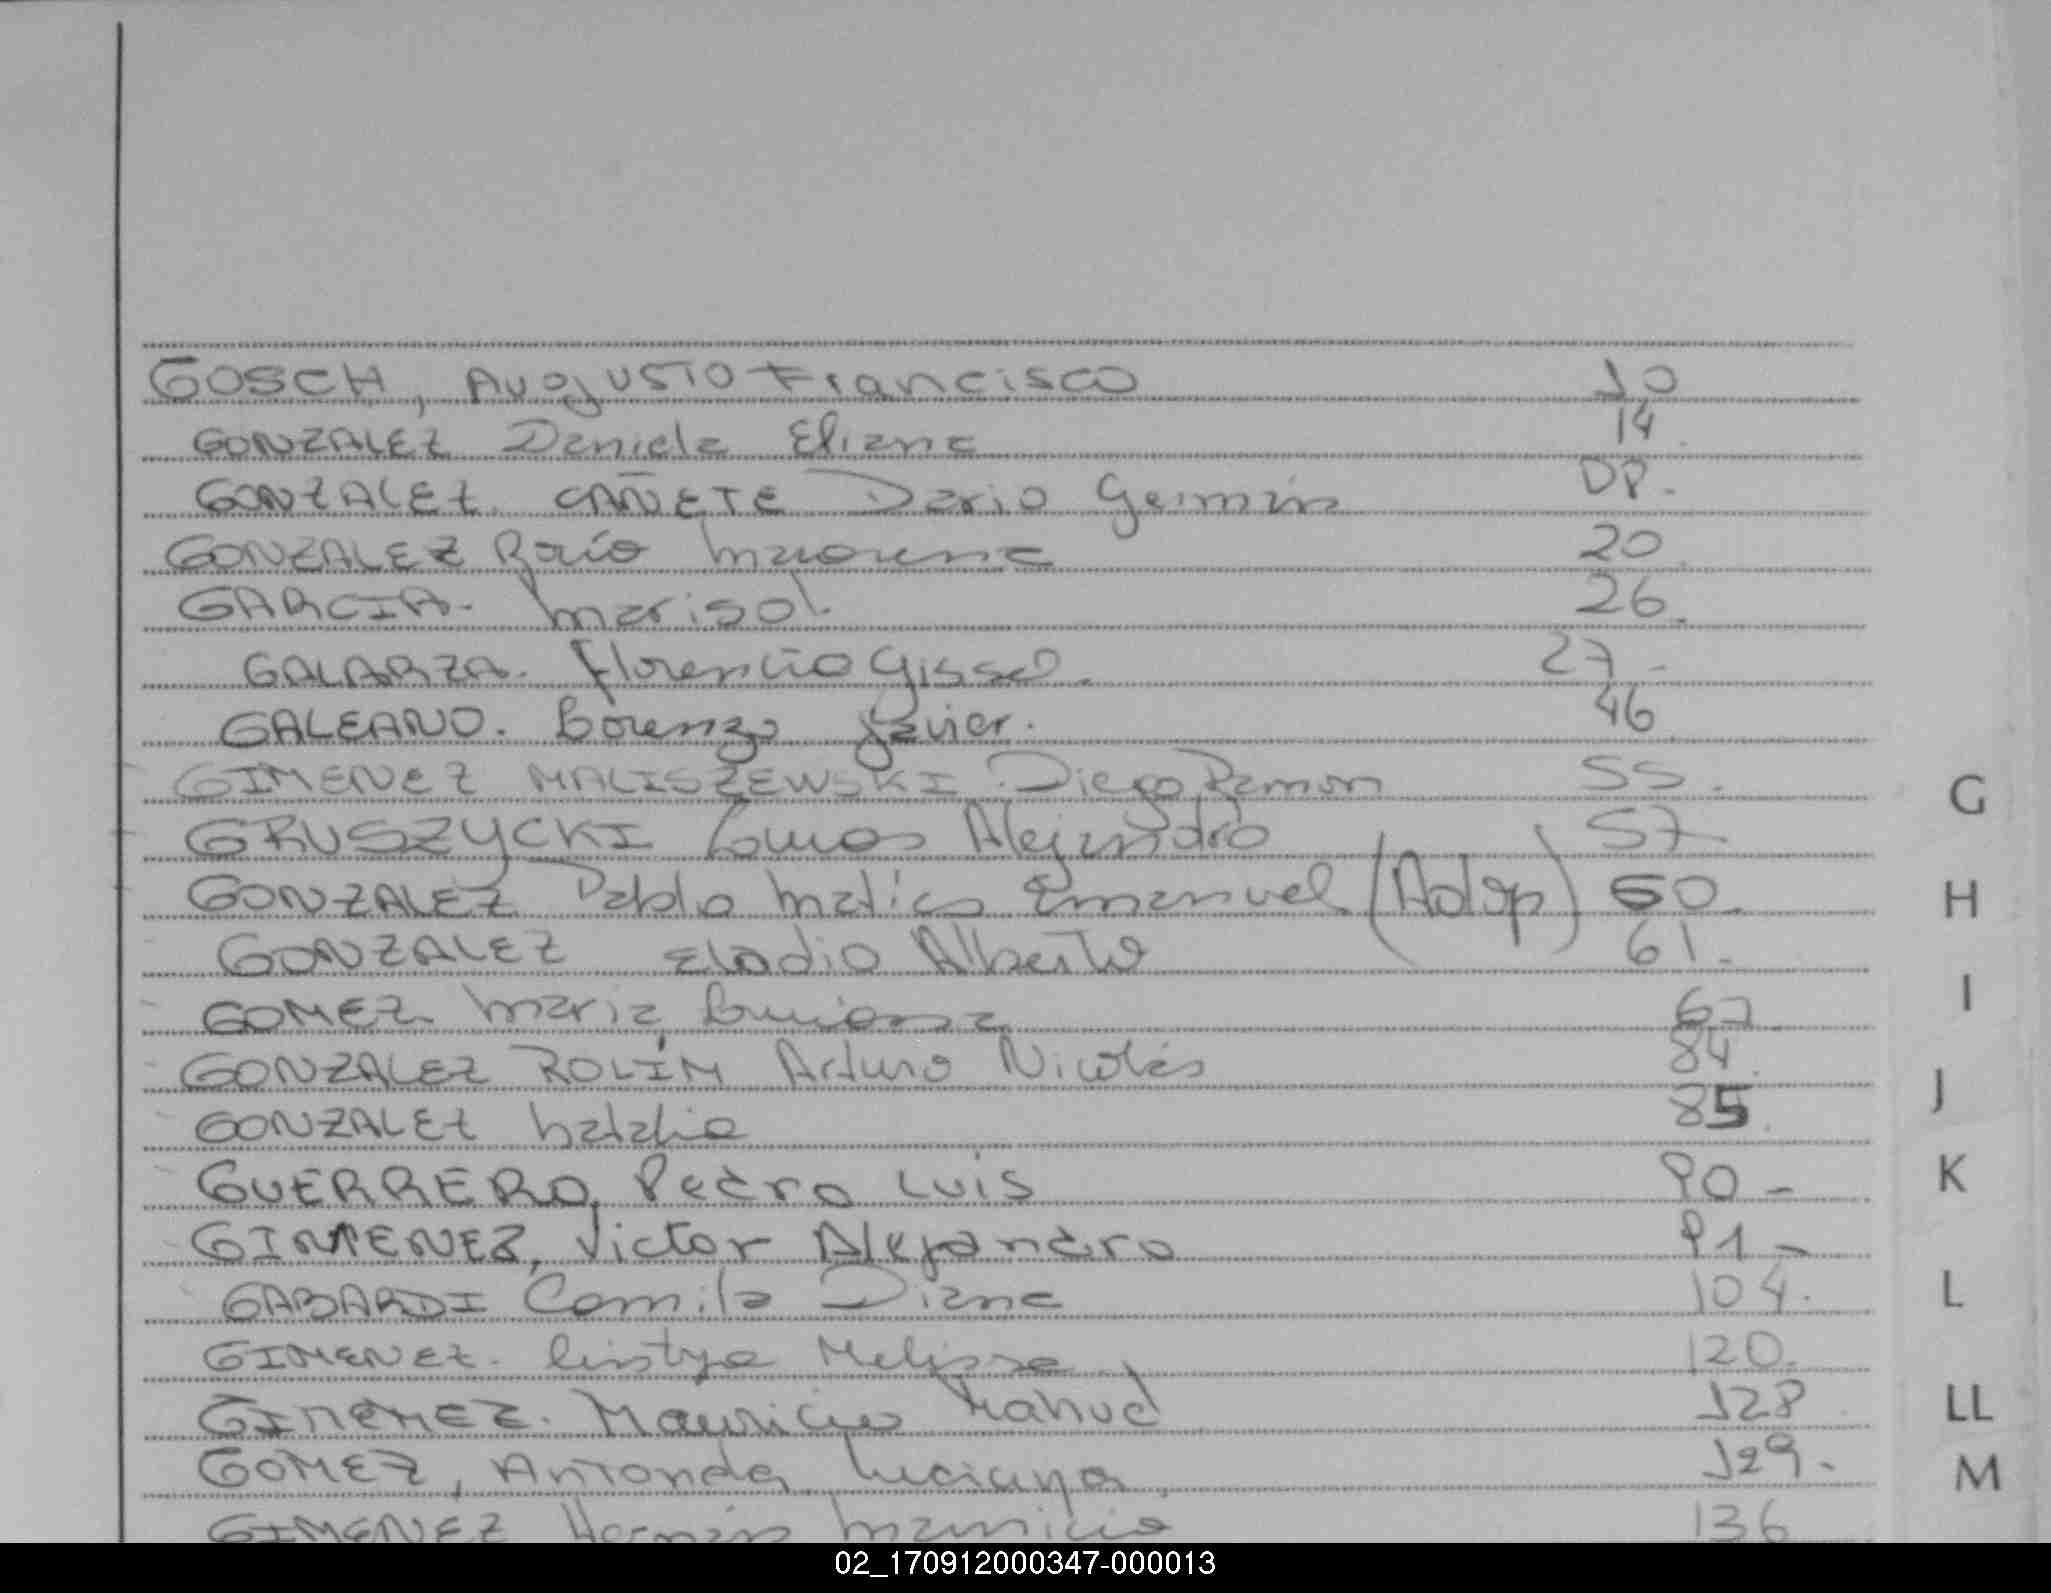 GOSCH, Augusto Francisco 10
GONZALEZ Daniela Eliana 14.
GONZALEZ CAÑETE Dario Germán DP.
GONZALEZ Rocío Macarena 20.
GARCIA. Marisol. 26.
GALARZA. Florencia Gissel. 27-
GALEANO. Lorenzo Javier. 46
GIMENEZ MALISZEWSKI. Diego Ramon 55.
GRUSZYCKI Lucas Alejandro 57-
GONZALEZ Pablo Matías Emanuel (Adop) 60.
GONZALEZ Eladio Alberto 61.
GOMEZ Maria Luciana 67.
GONZALEZ ROLÍM Arturo Nicolás 84.
GONZALEZ Natalia 85.
GUERRERO, Pedro Luis 90-
GIMENEZ, Victor Alejandro 91-
GABARDI Camila Diana 104.
GIMENEZ. Melissa 120.
GIMENEZ. Mauricio Nahuel 128
GOMEZ, Antonela Luciana. 129.
GIMENEZ Hernán Mauricio 136
G
H
I
J
K
L
LL
M
02_170912000347-000013